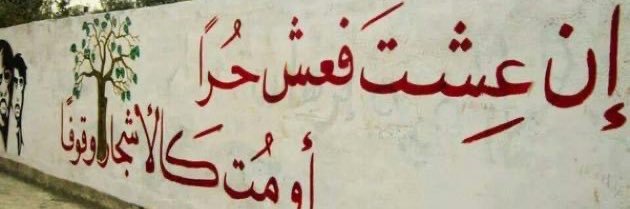 إن عِشتَ فعش حُرا
أو مُت كَالأشجار وقوفًا